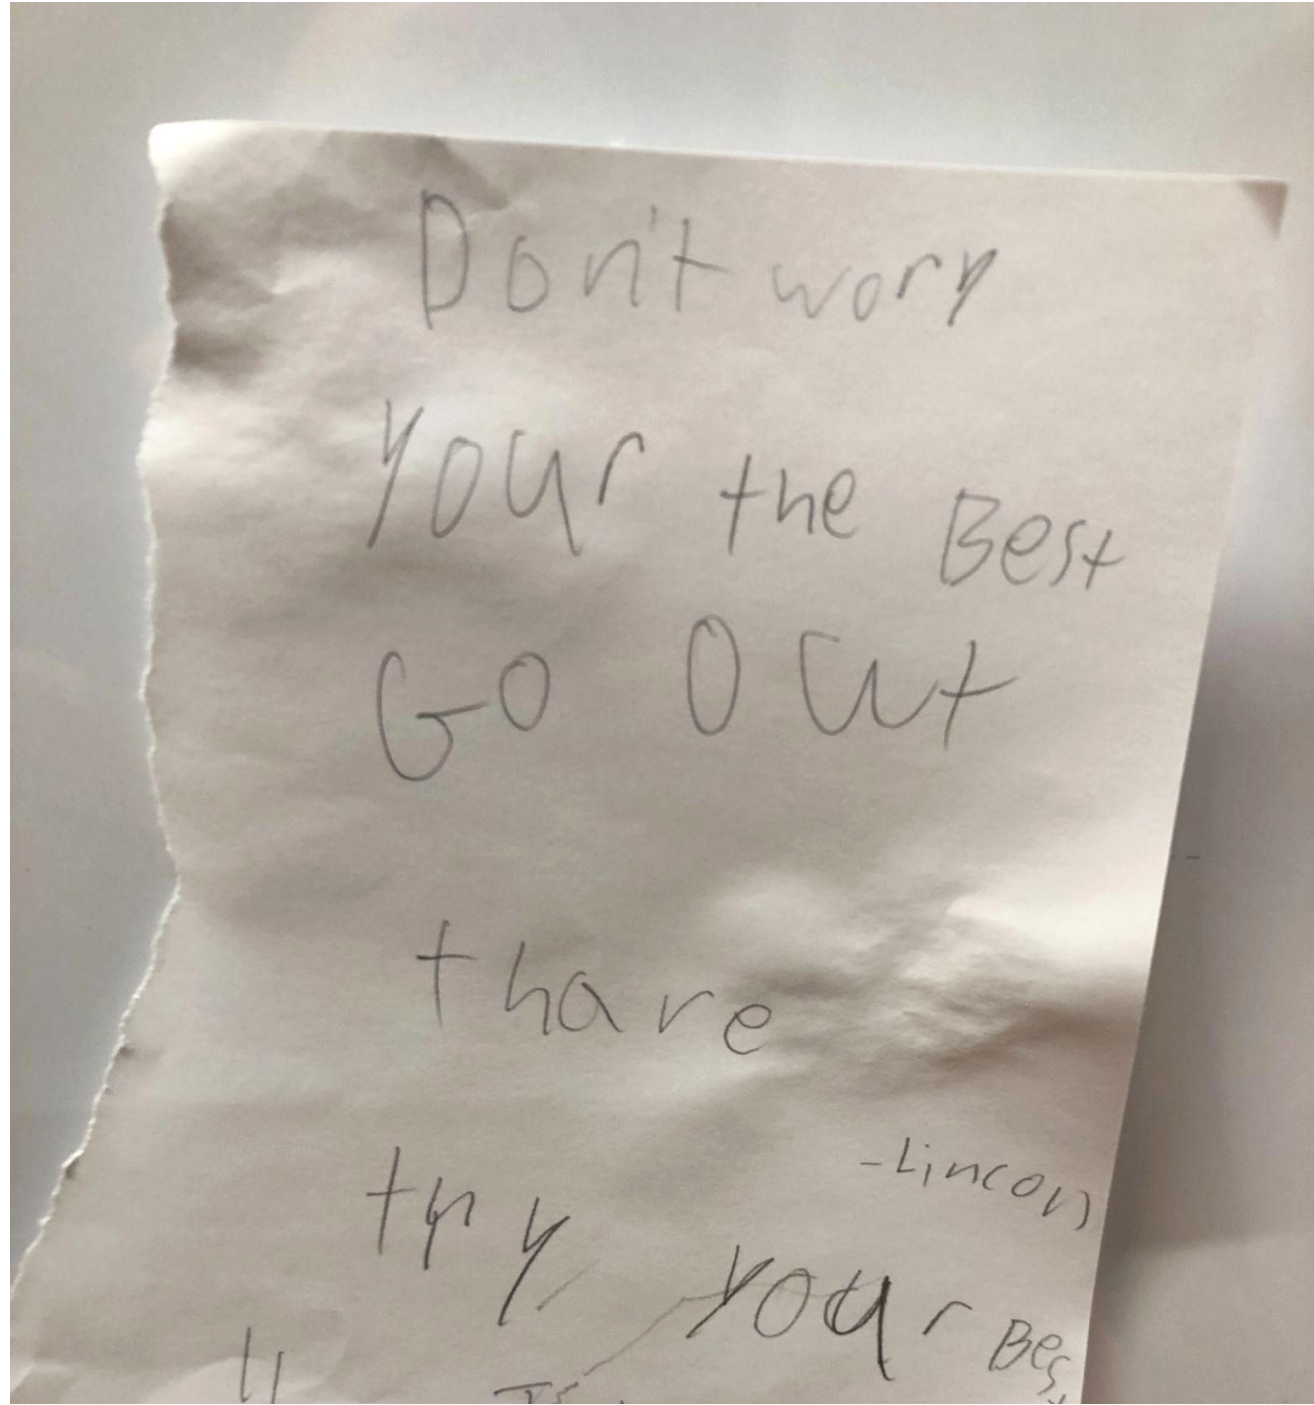 Don't wory
your the Best
Go Out
thare
-Lincon
try your Best